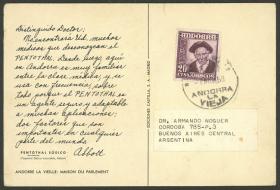 Distinguido Doctor:
No encontrará Vd. muchos
médicos que desconozcan el
PENTOTHAL. Desde luego aquí
en Andorra es muy familiar
entre la clase médica, y se
usa con frecuencia, sobre
todo porque el PENTOTHAL es
un agente seguro y adaptable
a muchas aplicaciones;
dos factores que son
importantes en cualquier
parte del mundo.
PENTOTHAL SÓDICO
Abbott
ANDORRE LA VIEILLE: MAISON DU PARLEMENT
ANDORRA
20
CTMS
CORREOS
ANDORRA
LA
VIEJA
DR. ARMANDO NOGUER
CORDOBA 785-P.3
BUENOS AIRES CENTRAL
ARGENTINA